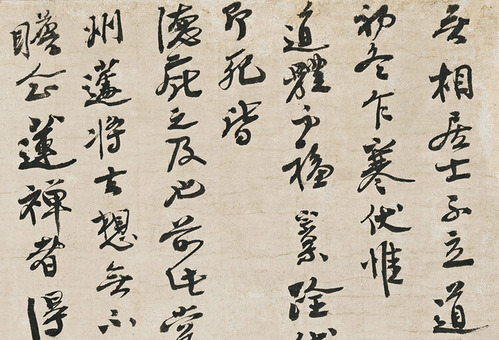 無相居士子立道
初冬乍寒伏惟
道體安穩
即死皆
德庇之及也前此嘗
州蓮將去想無不
瞻企蓮禪者得